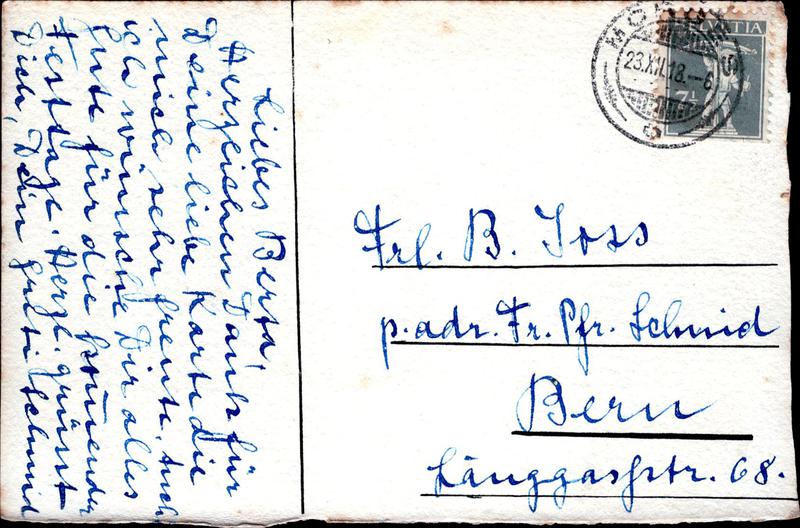 Liebes Berta,
Herzlichen Dank für
Deine liebe Karte die
mich sehr freute. Auch
ich wünsche Dir alles
Gute für die kommenden
Festtage. Herzl. grüsst
Dich, Dein Schmid
HELVETIA
7½
23.XII.18.-6
Frl. B. Joss
p. adr. Fr. Pfr. Schmid
Bern
Länggassstr. 68.